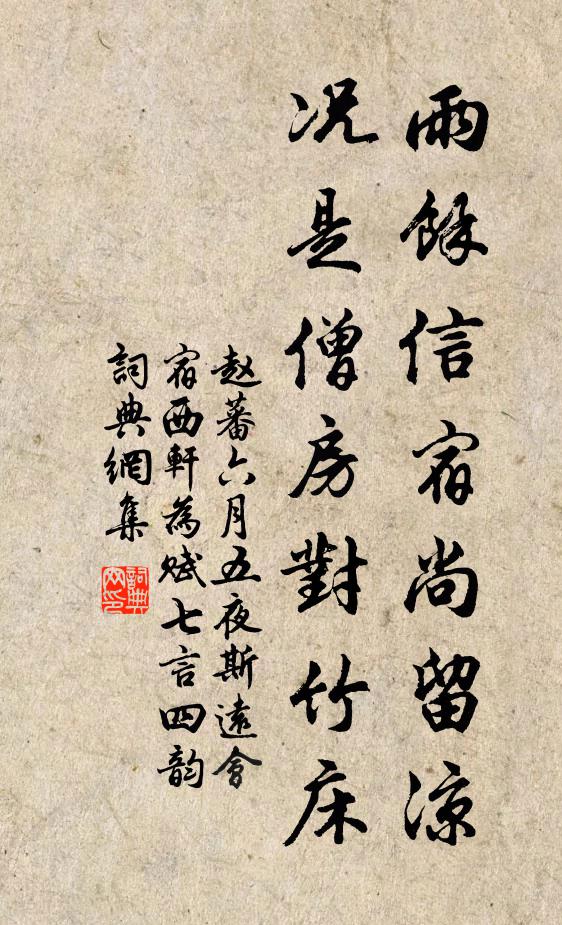 雨餘信宿尚留涼
况是僧房對竹床
赵蕃六月五夜斯遠會
宿西軒為赋七言四韵
詞典網集
詞典网印